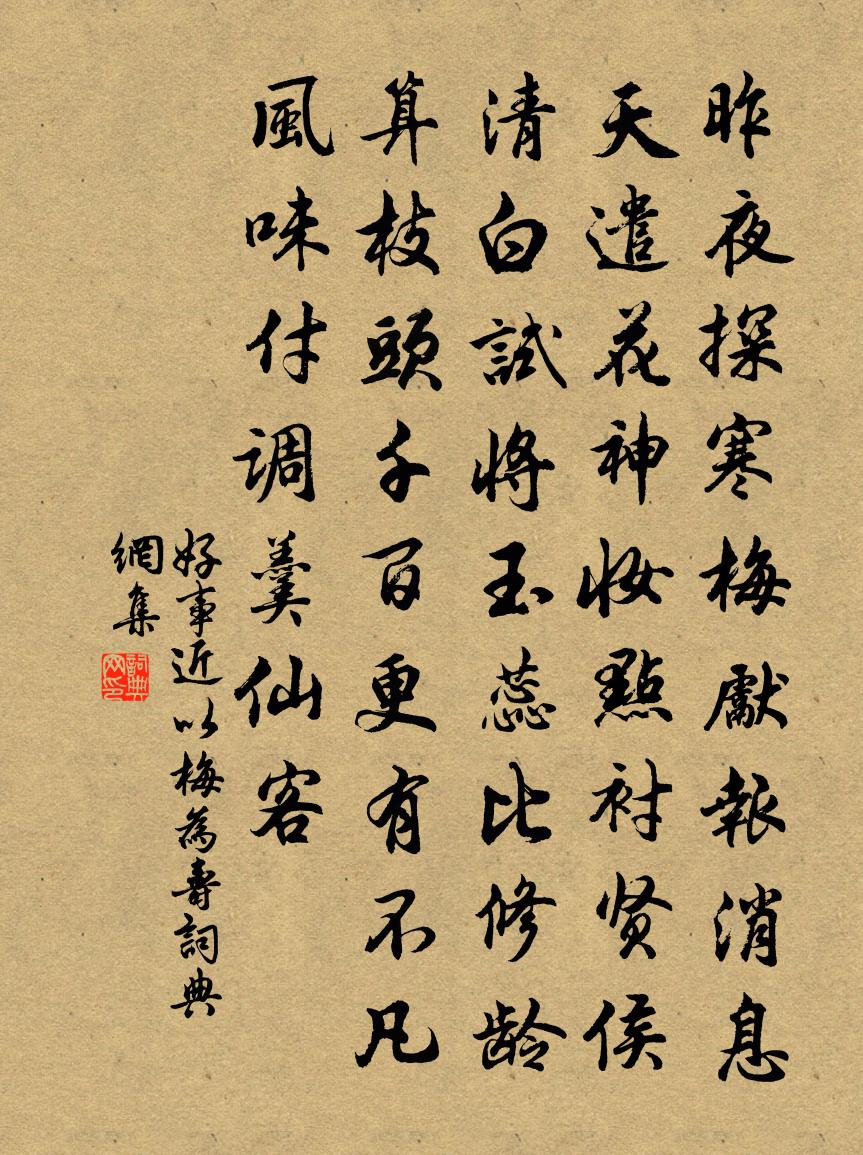 昨夜探寒梅獻報消息
天遣花神妝點衬贤侯
清白試將玉蕊比修龄
算枝頭千百更有不凡
風味付调羹仙客
好事近以梅為壽詞典
網集
詞典网印